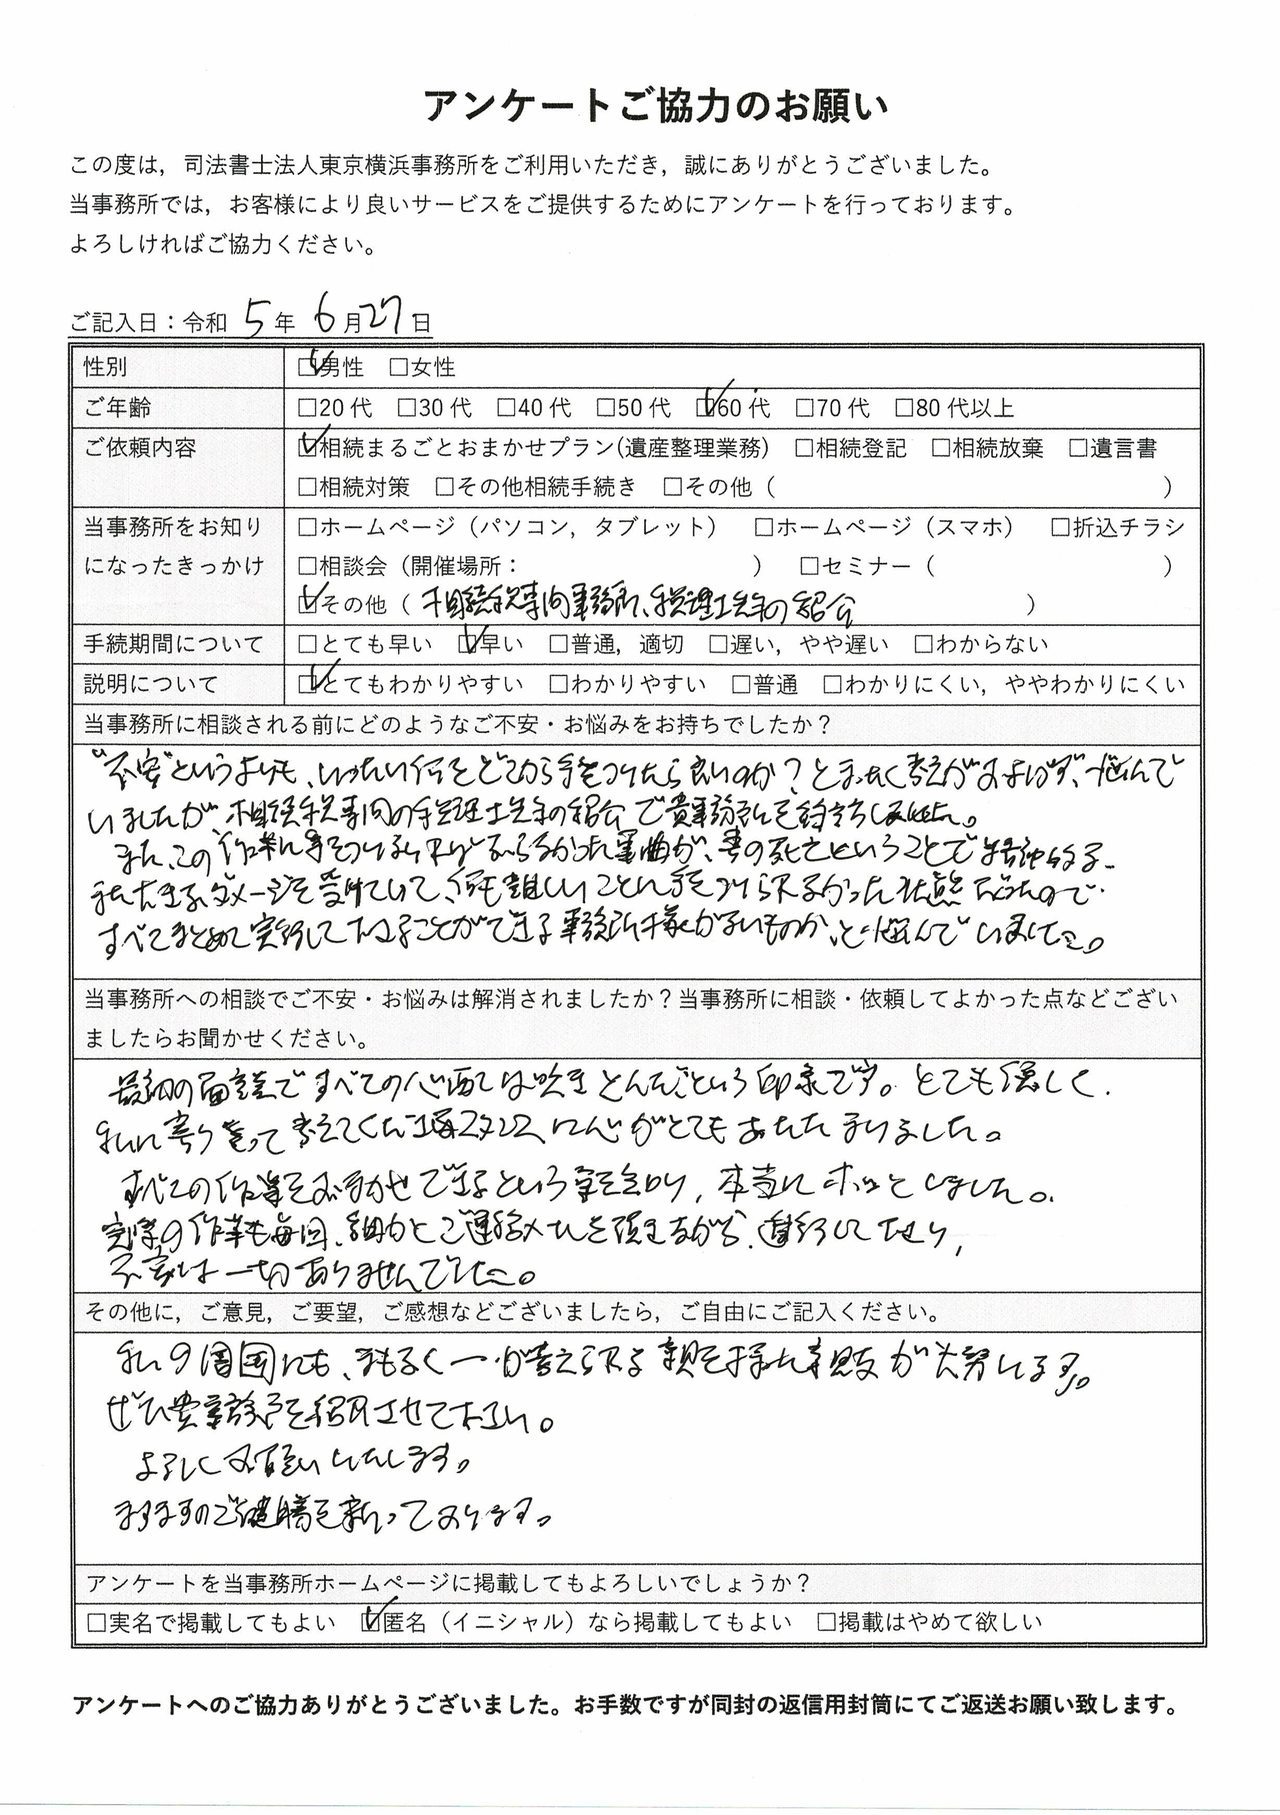 アンケートご協力のお願い
この度は，司法書士法人東京横浜事務所をご利用いただき，誠にありがとうございました。
当事務所では，お客様により良いサービスをご提供するためにアンケートを行っております。
よろしければご協力ください。
ご記入日：令和 5 年 6 月 27 日
性別 □男性 □女性
ご年齢 □20代 □30代 □40代 □50代 □60代 □70代 □80代以上
ご依頼内容 □相続まるごとおまかせプラン(遺産整理業務) □相続登記 □相続放棄 □遺言書
□相続対策 □その他相続手続き □その他（ ）
当事務所をお知り □ホームページ（パソコン，タブレット） □ホームページ（スマホ） □折込チラシ
になったきっかけ □相談会（開催場所： ） □セミナー（ ）
□その他（ 相続税専門事務所、税理士先生の紹介 ）
手続期間について □とても早い □早い □普通，適切 □遅い，やや遅い □わからない
説明について □とてもわかりやすい □わかりやすい □普通 □わかりにくい，ややわかりにくい
当事務所に相談される前にどのようなご不安・お悩みをお持ちでしたか？
"不安"というよりも、いったい何をどこから手をつけたら良いのか？とまったく考えがおよばず、悩んで
いましたが、相続税専門の税理士先生の紹介で貴事務所を
また、この作業に手をつけられなかった理由が、妻の死亡ということで精神的な
大きなダメージを受けていて、何も難しいことに手をつけられなかった状態だったので
すべてまとめて実行して下さることができる事務所様がないものか、と悩んでいました。
当事務所への相談でご不安・お悩みは解消されましたか？当事務所に相談・依頼してよかった点などござい
ましたらお聞かせください。
最初の面談ですべての心配は吹きとんだという印象です。とても優しく
私に寄り添って考えてくださるスタンスに心がとてもあたたまりました。
すべての作業をお任せできるという事を知り、本当にホッとしました。
実際の作業も毎回、細かとご連絡メールを頂きながら、進行して下さり、
不安は一切ありませんでした。
その他に，ご意見，ご要望，ご感想などございましたら，ご自由にご記入ください。
私の周囲にも、まもなく万一が考えられる親を持った親友が大勢いる為。
ぜひ貴事務所を紹介させて下さい。
よろしくお願いいたします。
ますますのご健勝を祈っております。
アンケートを当事務所ホームページに掲載してもよろしいでしょうか？
□実名で掲載してもよい □匿名（イニシャル）なら掲載してもよい □掲載はやめて欲しい
アンケートへのご協力ありがとうございました。お手数ですが同封の返信用封筒にてご返送お願い致します。